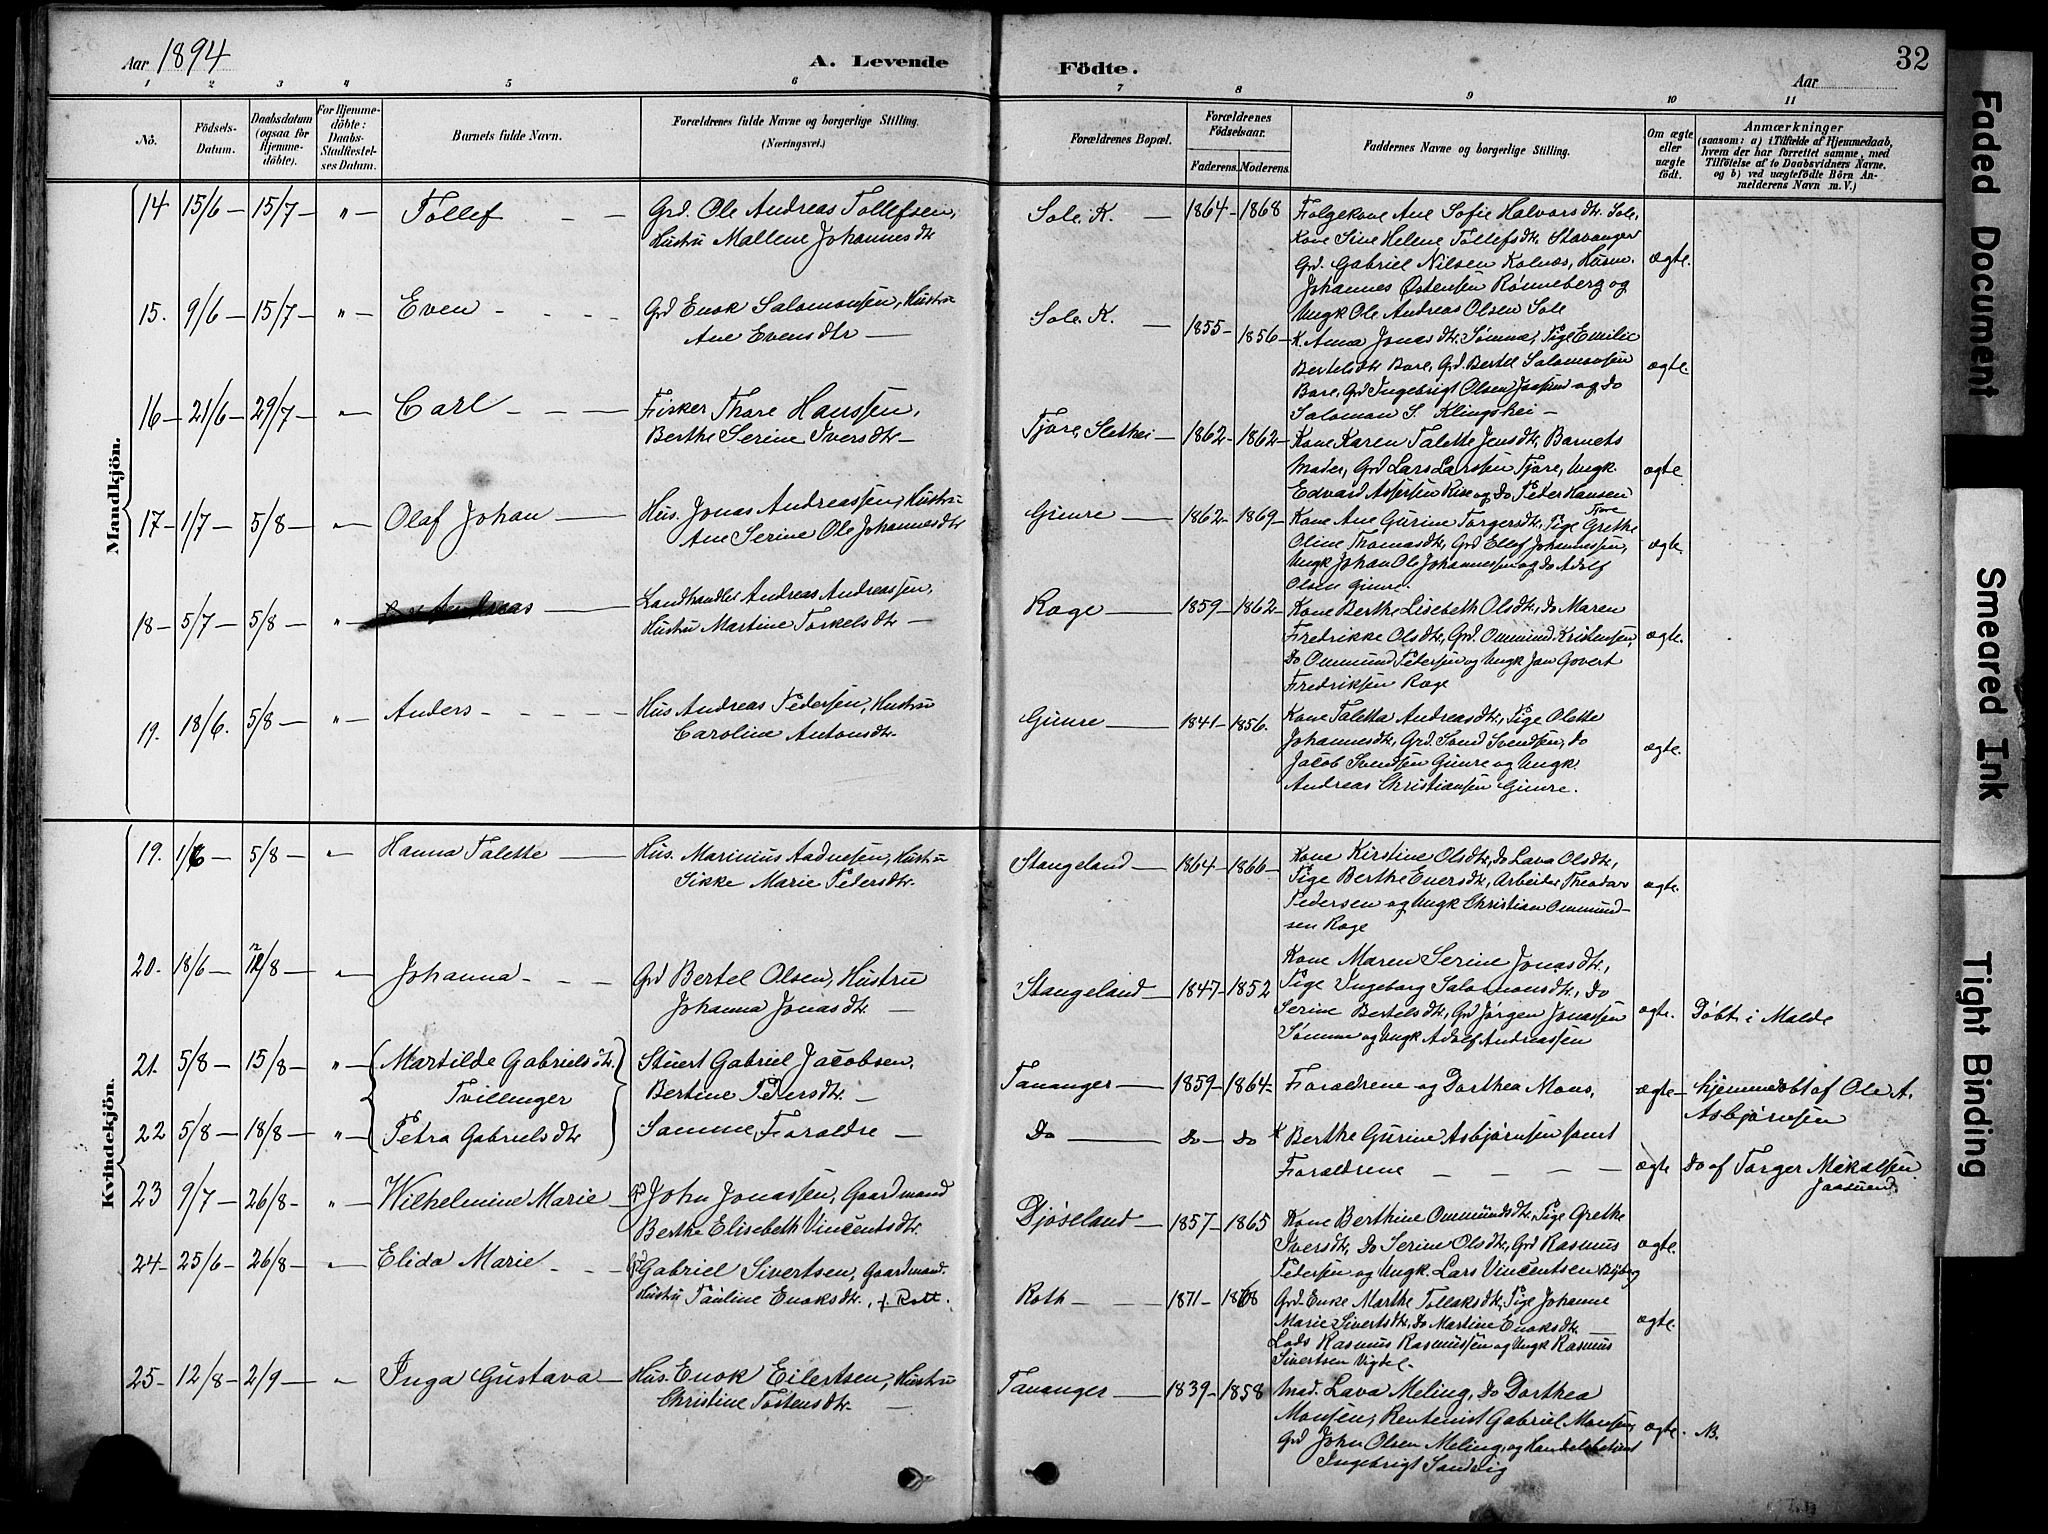 Aar 1894
A. Levende
Födte.
Aar
32
1 2 3 4 5 6 7 8 9 10 11
No.
Födsels-Datum.
Daabsdatum (ogsaa for Hjemmedöbte).
For Hjemmedöbte: Daabs-Stadfæstelses Datum.
Barnets fulde Navn.
Forældrenes fulde Navne og borgerlige Stilling.
(Næringsvei.)
Forældrenes Bopæl.
Forældrenes Födselsaar.
Faderens. Moderens.
Faddernes Navne og borgerlige Stilling.
Om ægte eller uægte födt.
Anmærkninger
(saasom: a) i Tilfælde af Hjemmedaab, hvem der har forrettet samme, med Tilföielse af to Daabsvidners Navne. og b) ved uægtefödte Börn Anmelderens Navn m. V.)
Mandkjön.
14 15/6 15/7 " Tollef
Grd. Ole Andreas Tollefsen,
Hustru Mallene Johannesdtr
Sole. K. 1864 - 1868
Folgekone Ane Sofie Halvorsdtr. Sole,
Kone Sine Helene Tollefsdtr. Stavanger
Grd. Gabriel Nilsen Kolnæs, Husm.
Johannes Østensen Rønneberg og
Ungk Ole Andreas Olsen Sole
ægte.
15. 9/6 15/7 " Even
Grd Enok Salomonsen, Hustru
Ane Evensdtr
Sole. K. 1855 - 1856
K. Anna Jonasdtr. Sømme, Pige Emilie
Bertelsdtr Bore, Grd Bertel Salomonsen
Bore, Grd Ingebrigt Olsen Jaasund og do
Salomon S. Klingshei
ægte.
16 21/6 29/7 " Carl
Fisker Thore Hanssen,
Berthe Serine Iversdtr
Tjore, Slethei 1862 - 1862
Kone Karen Talette Jensdtr, Barnets
Moder, Grd Lars Larssen Tjore, Ungk
Edvard Assersen Rise og do Peder Hansen
Tjore
ægte.
17 1/7 5/8 " Olaf Johan
Hus. Jonas Andreassen, Hustru
Ane Serine Ole Johannesdtr
Gimre 1862 - 1869
Kone Ane Gurine Torgersdtr, Pige Grethe
Oline Thomasdtr, Grd Ellef Johannessen,
Ungk Johan Ole Johannessen og do Adolf
Olsen Gimre.
ægte.
18 5/7 5/8 " Andreas
Landhandler Andreas Andreassen,
Hustru Martine Torkelsdtr
Roge 1859 - 1862
Kone Berthe Lisebeth Olsdtr, do Maren
Fredrikke Olsdtr, Grd. Ommund Kristensen,
do Ommund Pedersen og Ungk Jan Govert
Fredriksen Roge
ægte.
19. 18/6. 5/8 " Anders
Hus Andreas Pedersen, Hustru
Caroline Antonsdtr.
Gimre 1841 - 1856.
Kone Taletta Andreasdtr, Pige Olette
Johannesdtr, Grd. Svend Svendsen, do
Jacob Svendsen Gimre og Ungk.
Andreas Christiansen Gimre.
ægte.
Kvindekjön.
19. 1/6 5/8 " Hanna Talette
Hus. Marinius Aadnesen, Hustru
Sikke Marie Pedersdtr.
Stangeland 1864 - 1866
Kone Kirstine Olsdtr, do Lava Olsdtr,
Pige Berthe Enersdtr, Arbeider Theodor
Pedersen og Ungk Christian Ommund-
sen Roge
ægte.
20. 18/6 12/8 " Johanna
Grd Bertel Olsen, Hustru
Johanna Jonasdtr.
Stangeland 1847 - 1852
Kone Maren Serine Jonasdtr,
Pige Ingeborg Salomonsdtr, do
Serine Bertelsdtr, Grd Jørgen Jonassen
Sømme og Ungk Adolf Andreassen
ægte. Døbt i Malde
21. 5/8 15/8 " Martilde Gabrielsdtr.
Tvillinger
Stuert Gabriel Jacobsen,
Bertine Pedersdtr.
Tananger 1859 - 1864
Forældrene og Dorthea Mons.
ægte hjemmedøbt af Ole A.
Asbjørnsen
22 5/8 18/8 " Petra Gabrielsdtr
Samme Forældre
Do do do
K Berthe Gurine Asbjørnsen samt
Forældrene
ægte do af Torger Mikalsen
Jaasund
23 9/7 26/8 " Wilhelmine Marie
John Jonassen, Gaardmand
Berthe Elisebeth Vincentsdtr.
Djøseland 1857 - 1865
Kone Berthine Ommundsdtr, Pige Grethe
Iversdtr, do Serine Olsdtr, Grd Rasmus
Pedersen og Ungk. Lars Vincentsen Byberg
ægte.
24 25/6 26/8 " Elida Marie
Gabriel Sivertsen, Gaardmand.
Hustru Pauline Enoksdtr., f. Rott.
Roth 1871 - 1868
Grd. Enke Marthe Tollaksdtr, Pige Johanne
Marie Sivertsdtr, do Martine Enoksdtr
Lods Rasmus Rasmussen og Ungk Rasmus
Sivertsen Vigdel.
ægte.
25 12/8 2/9 " Inga Gustava
Hus. Enok Eilertsen, Hustru
Christine Tostensdtr.
Tananger 1839 - 1858
Mad. Lava Meling, do Dorthea
Monsen, Rentenist Gabriel Monsen,
Grd John Olsen Meling, og Handelsbetjent
Ingebrigt Sandvig
ægte. N.
Faded Document
Smeared Ink
Tight Binding